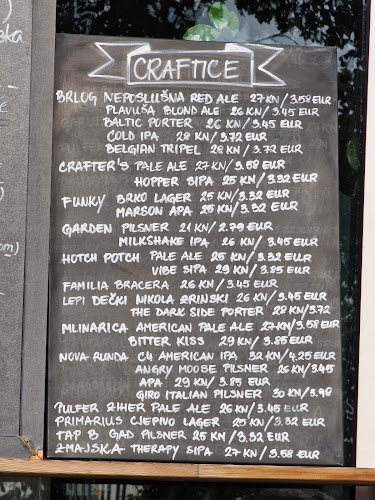 CRAFTICE
BRLOG NEPOSLUŠNA RED ALE 27 KN/3.58 EUR
PLAVUŠA BLOND ALE 26 KN/3.45 EUR
BALTIC PORTER 26 KN/3.45 EUR
COLD IPA 28 KN/3.72 EUR
BELGIAN TRIPEL 28 KN/3.72 EUR
CRAFTER'S PALE ALE 27 KN/3.58 EUR
HOPPER SIPA 25 KN/3.32 EUR
FUNKY BRKO LAGER 25 KN/3.32 EUR
MARSON APA 25 KN/3.32 EUR
GARDEN PILSNER 21 KN/2.79 EUR
MILKSHAKE IPA 26 KN/3.45 EUR
HOTCH POTCH PALE ALE 25 KN/3.32 EUR
VIBE SIPA 29 KN/3.85 EUR
FAMILIA BRACERA 26 KN/3.45 EUR
LEPI DEČKI NIKOLA ZRINSKI 26 KN/3.45 EUR
THE DARK SIDE PORTER 28 KN/3.72
MLINARICA AMERICAN PALE ALE 27 KN/3.58 EUR
BITTER KISS 29 KN/3.85 EUR
NOVA RUNDA C4 AMERICAN IPA 32 KN/4.25 EUR
ANGRY MOOSE PILSNER 26 KN/3.45
APA 29 KN/3.85 EUR
GIRO ITALIAN PILSNER 30 KN/3.98
PULFER ZHIER PALE ALE 26 KN/3.45 EUR
PRIMARIUS CJEPIVO LAGER 25 KN/3.32 EUR
TAP B GAD PILSNER 25 KN/3.32 EUR
ZMAJSKA THERAPY SIPA 27 KN/3.58 EUR